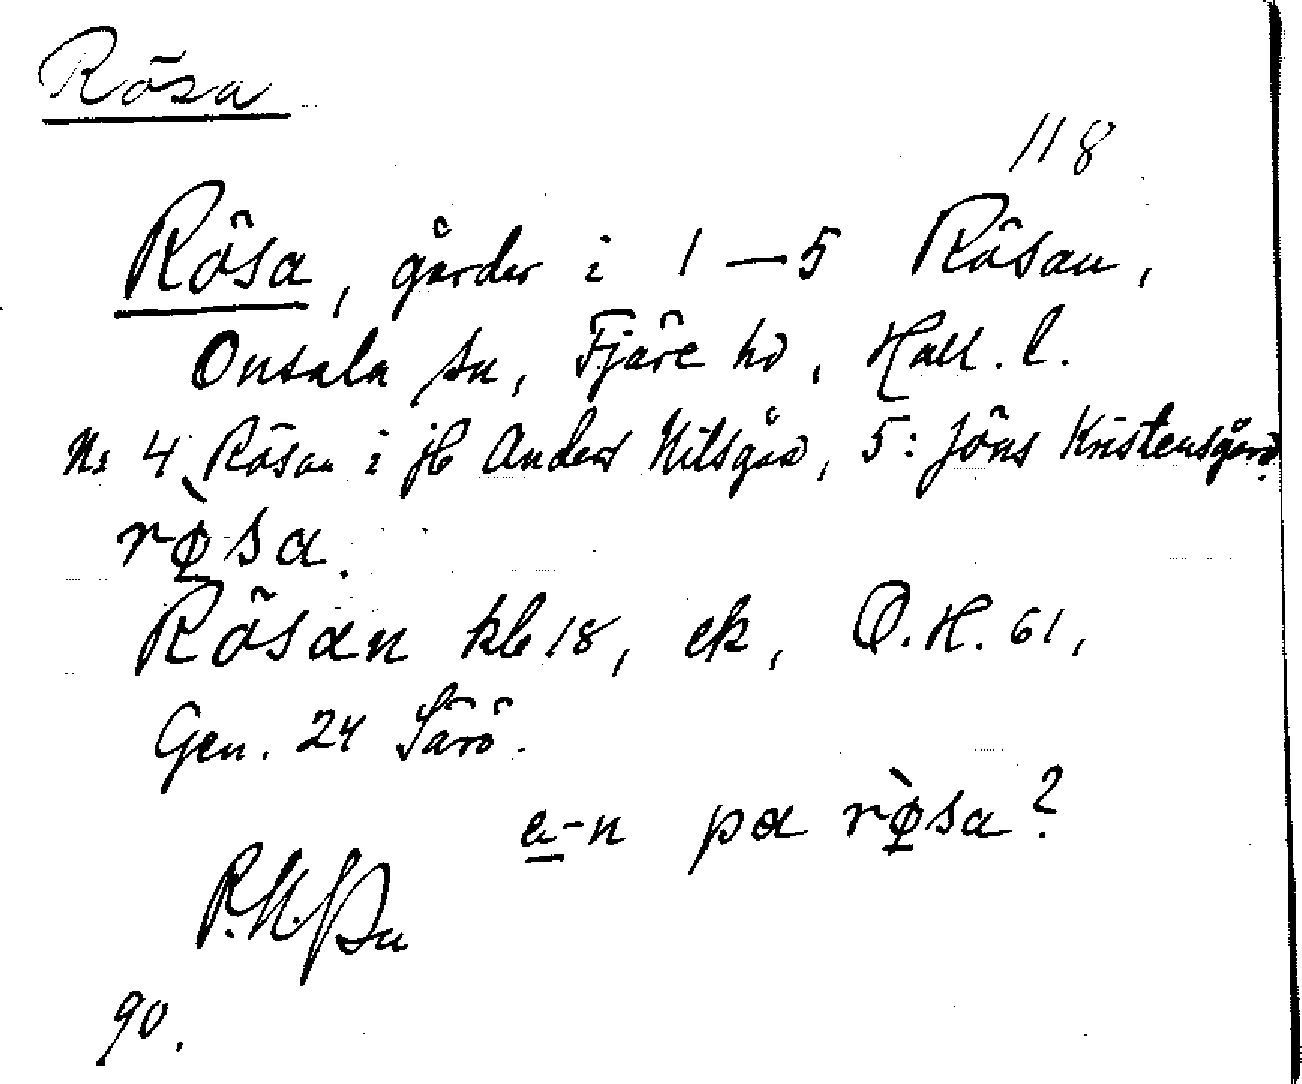 Rösa
118
Rösa, gårdar i 1—5 Rösan,
Onsala sn, Fjäre hd, Hall. l.
No 4 Rösan i jb Anders Nilsgård, 5: Jöns Kristensgård.
rø̀sa.
Rösan kb 18, ek, O.H. 61,
Gen. 24 Särö.
a-n pɑ rø̀sa?
90.